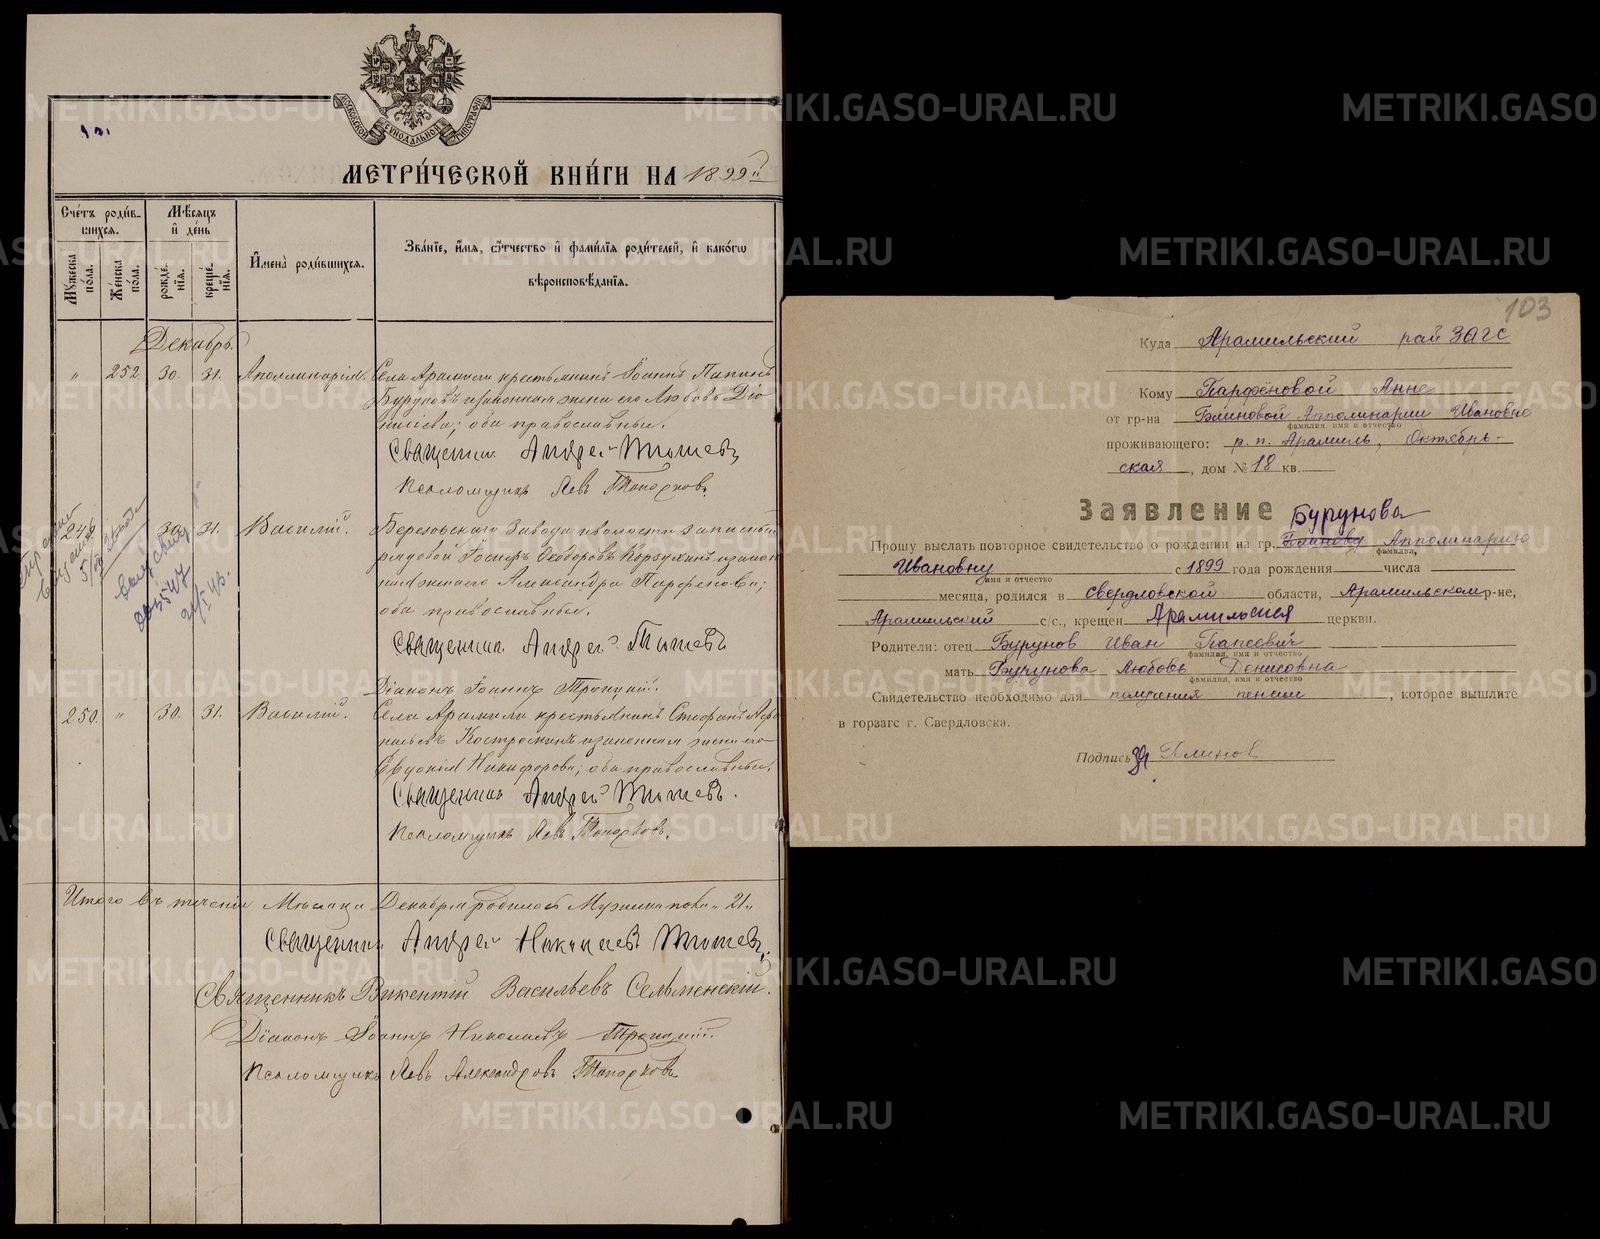 МОСКОВСКОЙ СѴНОДАЛЬНОЙ ТИПОГРАФІИ
МЕТРИ́ЧЕСКОЙ КНИ́ГИ НА 1899й
Сче́тъ роди́в-
шихся.
Мѣ́сяцъ
и҆ де́нь
И҆мена̀ роди́вшихся.
Зва́нїе, и҆́мя, ѻ҆́тчество и҆ фами́лїя роди́телей, и҆ како́гѡ
вѣроисповѣ́данїя.
Му́жеска
по́ла.
Же́нска
по́ла.
рожде́-
нїя.
креще́-
нїя.
Декабрь.
" 252 30. 31. Аполлинарія. Села Арамили крестьянинъ Іоаннъ Папинъ
Буруновъ и законная жена его Любовь Діо
нисіева; оба православные.
Священникъ Андрей Тотьшевъ
Псаломщикъ Левъ Топорковъ.
249 30. 31. Василій. Березовскаго завода и волости запасный
рядовой Іосифъ Ѳеодоровъ Корзухинъ и закон
ная жена его Александра Парфенова;
оба православные.
Священникъ Андрей
Діаконъ Іоаннъ Троицкій.
250. " 30. 31. Василій. Села Арамили крестьянинъ Стефанъ
Костромкинъ и законная жена его
Евдокія Никифорова; оба православные.
Священникъ Андрей
Псаломщикъ Левъ Топорковъ.
Итого въ теченіи Мѣсяца Декабря родилось Мужеска пола 21
Священникъ Андрей Николаевъ
Священникъ Викентій Васильевъ Сельменскій.
Діаконъ Іоаннъ Николаевъ Троицкій.
Псаломщикъ Левъ Александровъ Топорковъ
103
Куда Арамильский рай ЗАГС
Кому Парфёновой Анне
от гр-на Блиновой Апполинарии Ивановне
фамилия, имя и отчество
проживающего: р. п. Арамиль, Октябрь-
ская, дом № 18 кв.
Заявление
Бурунова
Прошу выслать повторное свидетельство о рождении на гр. Блинову Апполинарию
фамилия,
Ивановну с 1899 года рождения числа
имя и отчество
месяца, родился в Свердловской области, Арамильском р-не,
Арамильский с/с., крещен Арамильская церкви.
Родители: отец Бурунов Иван Папеевич
фамилия, имя и отчество
мать Бурунова Любовь Денисовна
фамилия, имя и отчество
Свидетельство необходимо для получения пенсии, которое вышлите
в горзагс г. Свердловска.
Подпись Блинов
METRIKI.GASO-URAL.RU